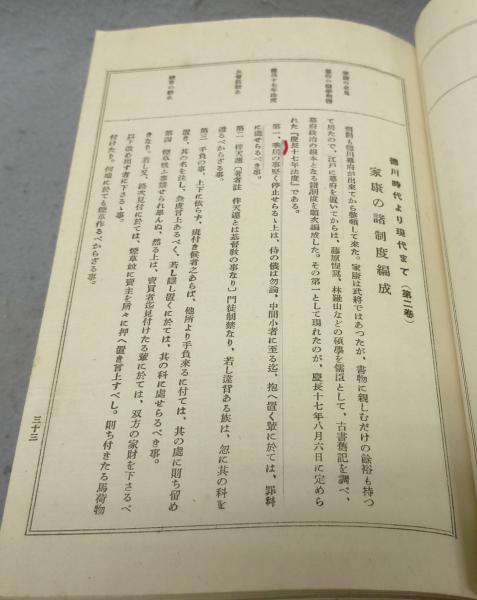 徳川時代より現代まで（第二巻）
家康の諸制度編成
制度も徳川幕府が出来てから整頓して来た。家康は武將ではあつたが、書物に親しむだけの餘裕も持つ
て居たので、江戸に幕府を置いてからは、藤原惺窩、林羅山などの碩學を儒臣として、古書舊記を調べ、
幕府政治の根本となる諸制度を順次編成した。その第一として現れたのが、慶長十七年八月六日に定めら
れた『慶長十七年法度』である。
第一、季居の事堅く停止せらるゝ上は、侍の儀は勿論、中間小者に至る迄、抱へ置く輩に於ては、罪科
に處せらるべき事。
第二、伴天連〔著者註 伴天連とは基督教の事なり〕門徒制禁なり、若し違背ある族は、忽に其の科を
遁るべからざる事。
第三、手負の事、上下に依らず、疵付き候者之あらば、他所より手負來るに付ては、其の處に則ち留め
置き、其の名を注し、急度言上あるべく、若し隱し置くに於ては、其の科に處せらるべき事。
第四、煙草吸ふ事禁ぜられ畢んぬ、然る上は、賣買者迄見付けたる輩に於ては、双方の家財を下さるべ
きなり、若し又、路次見付に於ては、煙草並に賣主を所々に押へ置き言上すべし。則ち付きたる馬荷物
以下改め出す者に下さるゝ事。
付けたり、何處に於ても煙草作るべからざる事。
慶長十七年法度
三十三